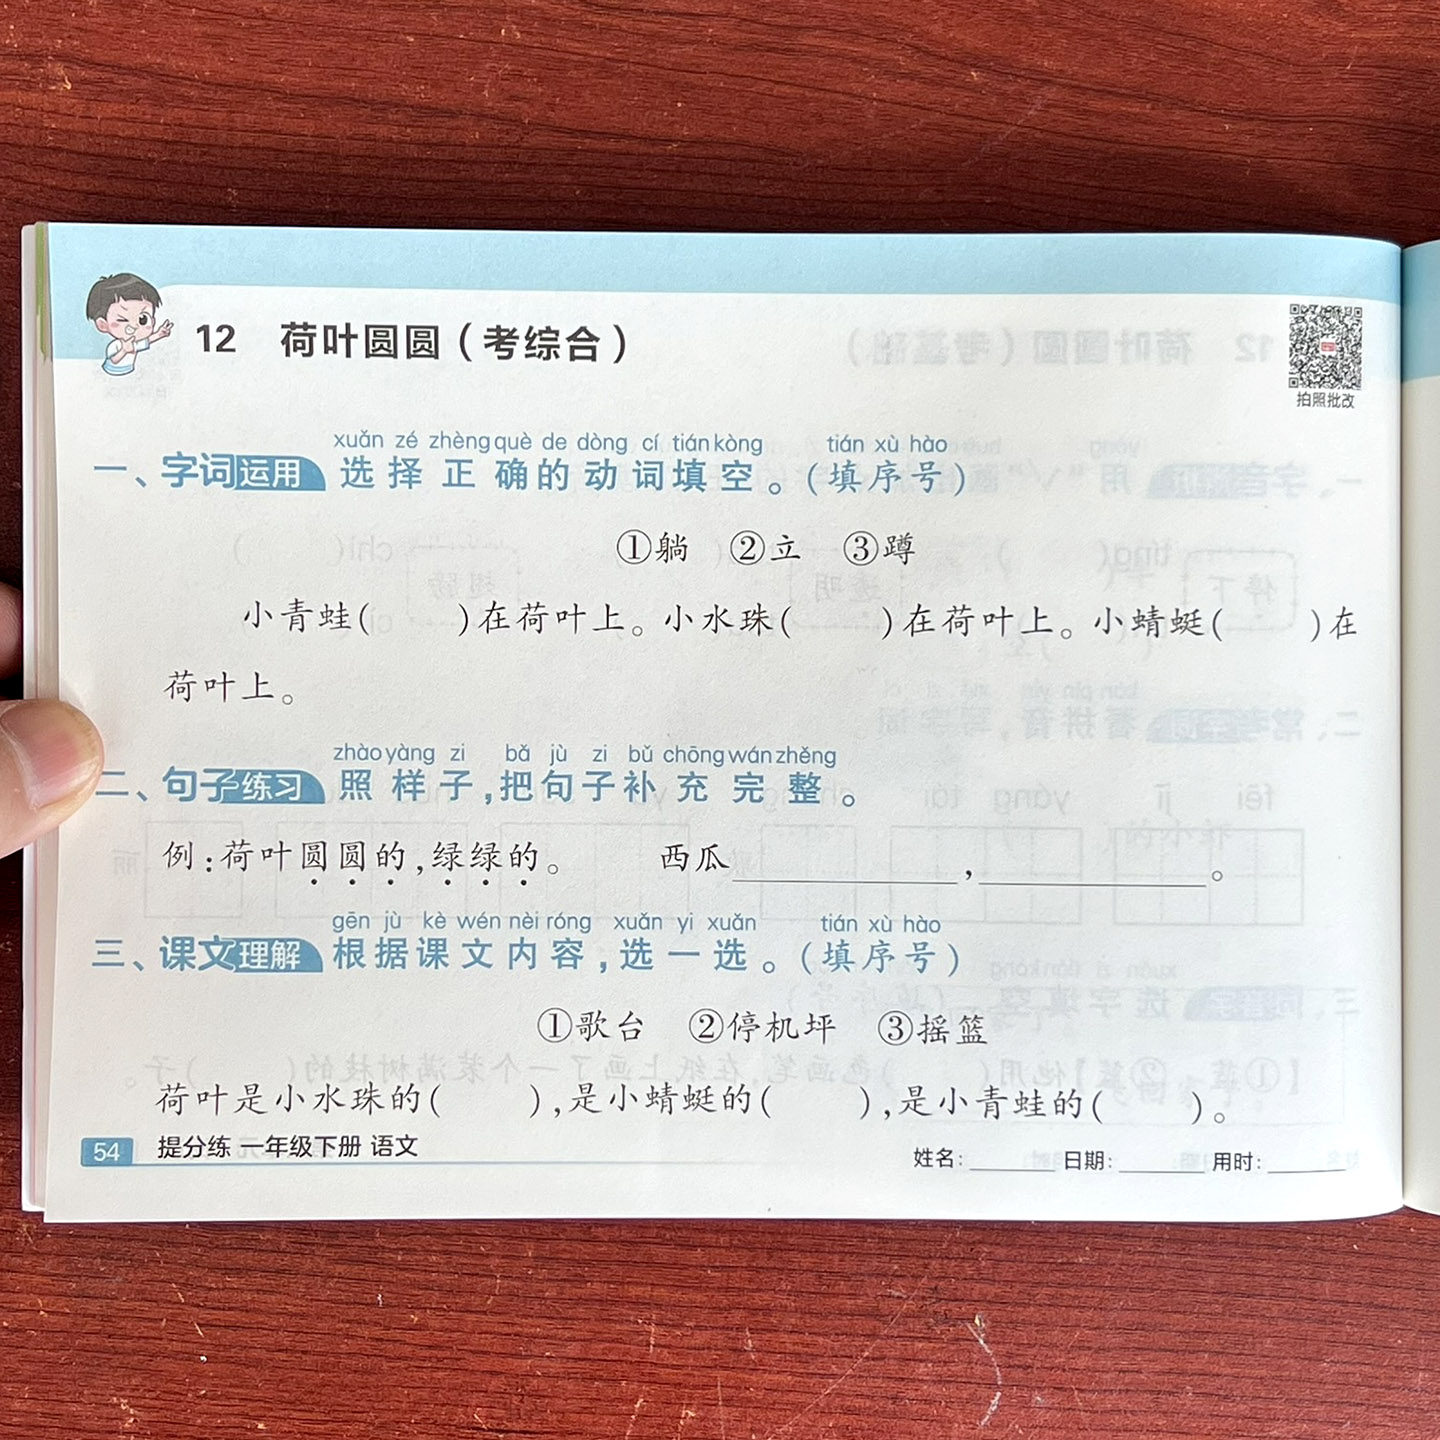 12 荷叶圆圆（考综合）
拍照批改
xuǎn zé zhèng què de dòng cí tián kòng tián xù hào
一、字词运用 选择正确的动词填空。（填序号）
①躺 ②立 ③蹲
小青蛙( )在荷叶上。小水珠( )在荷叶上。小蜻蜓( )在
荷叶上。
zhào yàng zi bǎ jù zi bǔ chōng wán zhěng
二、句子练习 照样子，把句子补充完整。
例：荷叶圆圆的，绿绿的。 西瓜____________，____________。
gēn jù kè wén nèi róng xuǎn yi xuǎn tián xù hào
三、课文理解 根据课文内容，选一选。（填序号）
①歌台 ②停机坪 ③摇篮
荷叶是小水珠的( )，是小蜻蜓的( )，是小青蛙的( )。
54 提分练 一年级下册 语文
姓名：______ 日期：______ 用时：______